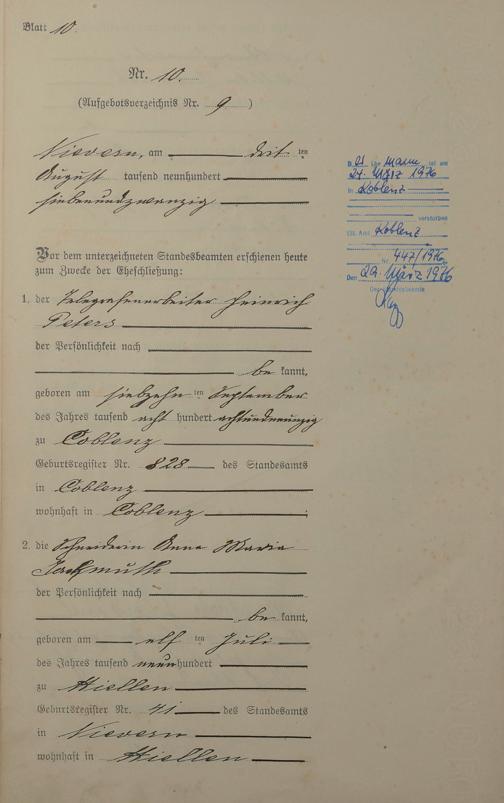 Blatt 10.
Nr. 10.
(Aufgebotsverzeichnis Nr. 9)
Nievern, am drit ten
August tausend neunhundert
siebenundzwanzig
Vor dem unterzeichneten Standesbeamten erschienen heute
zum Zwecke der Eheschließung:
1. der Telegrafenarbeiter Heinrich
Peters
der Persönlichkeit nach
be kannt,
geboren am siebzehn ten September
des Jahres tausend acht hundert achtundneunzig
zu Coblenz
Geburtsregister Nr. 828 des Standesamts
in Coblenz
wohnhaft in Coblenz
2. die Schneiderin Anna Maria
der Persönlichkeit nach
be kannt,
geboren am elf ten Juli
des Jahres tausend neunhundert
zu Miellen
Geburtsregister Nr. 41 des Standesamts
in Nievern
wohnhaft in Miellen
D. Ehe Mann ist am
24. März 1976
in Koblenz
verstorben
Sta. Amt Koblenz
Nr. 447/1976
Den 29. März 1976
Der Standesbeamte